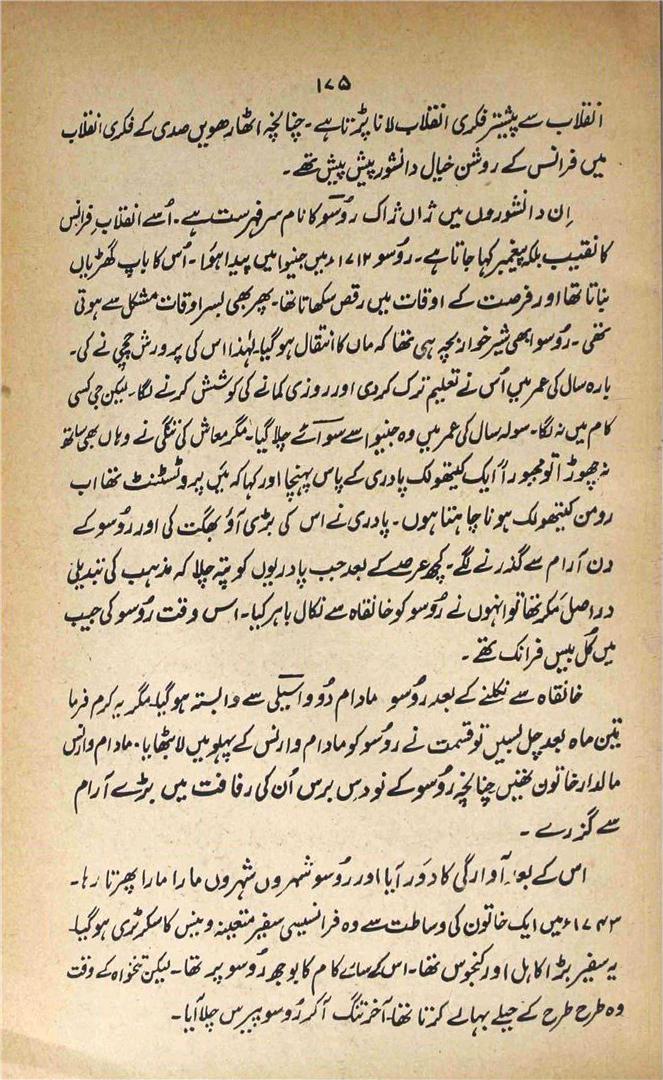 ۱۷۵
انقلاب سے پیشتر فکری انقلاب لانا پڑتا ہے۔ چنانچہ اٹھارھویں صدی کے فکری انقلاب
میں فرانس کے روشن خیال دانشور پیش پیش تھے۔
اِن دانشوروں میں ژاں ژاک روُسو کا نام سرِفہرست ہے۔ اُسے انقلابِ فرانس
کا نقیب بلکہ پیغمبر کہا جاتا ہے۔ روُسو ۱۷۱۲ء میں جنیوا میں پیدا ہوُا۔ اُس کا باپ گھڑیاں
بناتا تھا اور فرصت کے اوقات میں رقص سکھاتا تھا۔ پھر بھی بسر اوقات مشکل سے ہوتی
تھی۔ روُسو ابھی شیر خوار بچہ ہی تھا کہ ماں کا انتقال ہو گیا۔ لہٰذا اس کی پرورش چچی نے کی۔
بارہ سال کی عمر میں اُس نے تعلیم ترک کر دی اور روزی کمانے کی کوشش کرنے لگا۔ لیکن جی کسی
کام میں نہ لگا۔ سولہ سال کی عمر میں وہ جنیوا سے سوائے چلا گیا۔ مگر معاش کی تنگی نے وہاں بھی ساتھ
نہ چھوڑا تو مجبوراً ایک کیتھولک پادری کے پاس پہنچا اور کہا کہ میَں پروٹسٹنٹ تھا اب
رومن کیتھولک ہونا چاہتا ہوں۔ پادری نے اس کی بڑی آؤ بھگت کی اور روُسو کے
دن آرام سے گذرنے لگے۔ کچھ عرصے کے بعد جب پادریوں کو پتہ چلا کہ مذہب کی تبدیلی
دراصل مکر تھا تو انہوں نے روُسو کو خانقاہ سے نکال باہر کیا۔ اس وقت روُسو کی جیب
میں کُل بیس فرانک تھے۔
خانقاہ سے نکلنے کے بعد روُسو مادام دُو واسیلی سے وابستہ ہو گیا۔ مگر یہ کرم فرما
تین ماہ بعد چل بسیں تو قسمت نے روُسو کو مادام وارنس کے پہلو میں لا بٹھایا۔ مادام وارنس
مالدار خاتون تھیں چنانچہ روُسو کے نو دس برس اُن کی رفاقت میں بڑے آرام
سے گزرے۔
اس کے بعد آوارگی کا دَور آیا اور روُسو شہروں شہروں مارا مارا پھرتا رہا۔
۱۷۴۳ء میں ایک خاتون کی وساطت سے وہ فرانسیسی سفیر متعینہ وینس کا سکرٹری ہو گیا۔
یہ سفیر بڑا کاہل اور کنجوس تھا۔ اس کے سارے کام کا بوجھ روُسو پر تھا۔ لیکن تنخواہ کے وقت
وہ طرح طرح کے حیلے بہانے کرتا تھا۔ آخر تنگ آ کر روُسو پیرس چلا آیا۔